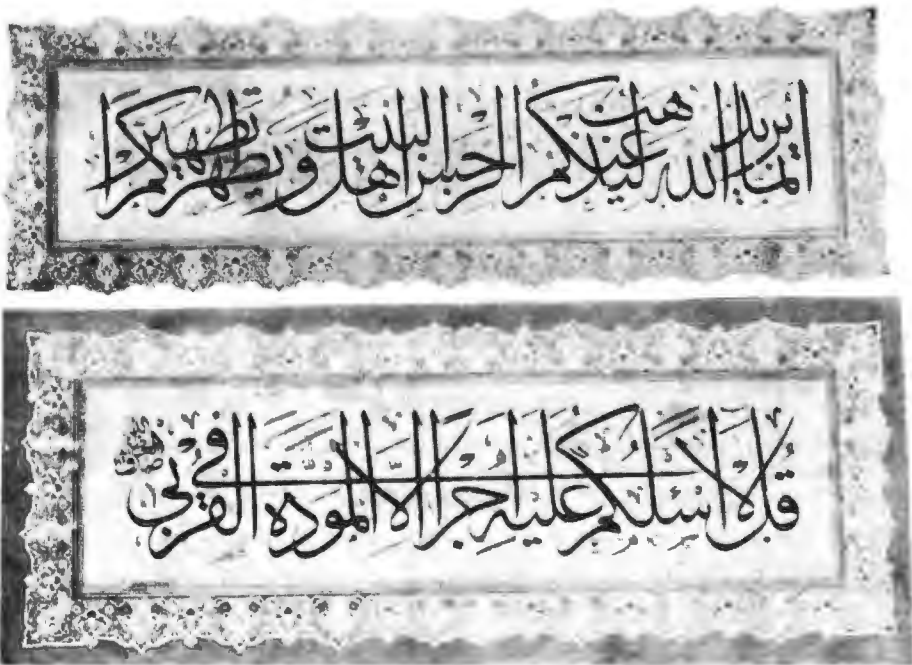 انما يريد الله ليذهب عنكم الرجس اهل البيت و يطهركم تطهيرا
قل لا اسئلكم عليه اجرا الا المودة في القربى